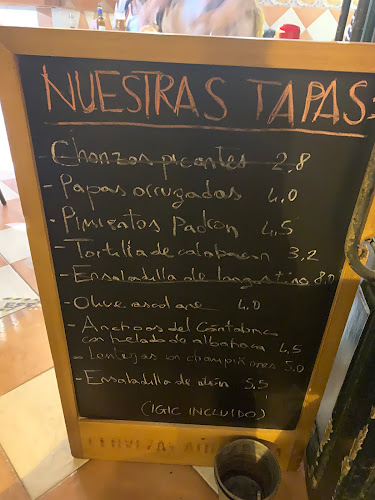 NUESTRAS TAPAS:
- Chorizos picantes 2,8
- Papas arrugadas 4,0
- Pimientos Padrón 4,5
- Tortilla de calabacin 3,2
- Ensaladilla de langostino 8,0
- Olive ascolane 4,0
- Anchoas del Cantabrico
con helado de albahaca 4,5
- Lentejas con champiñones 5,0
- Ensaladilla de 5,5
(IGIC INCLUIDO)